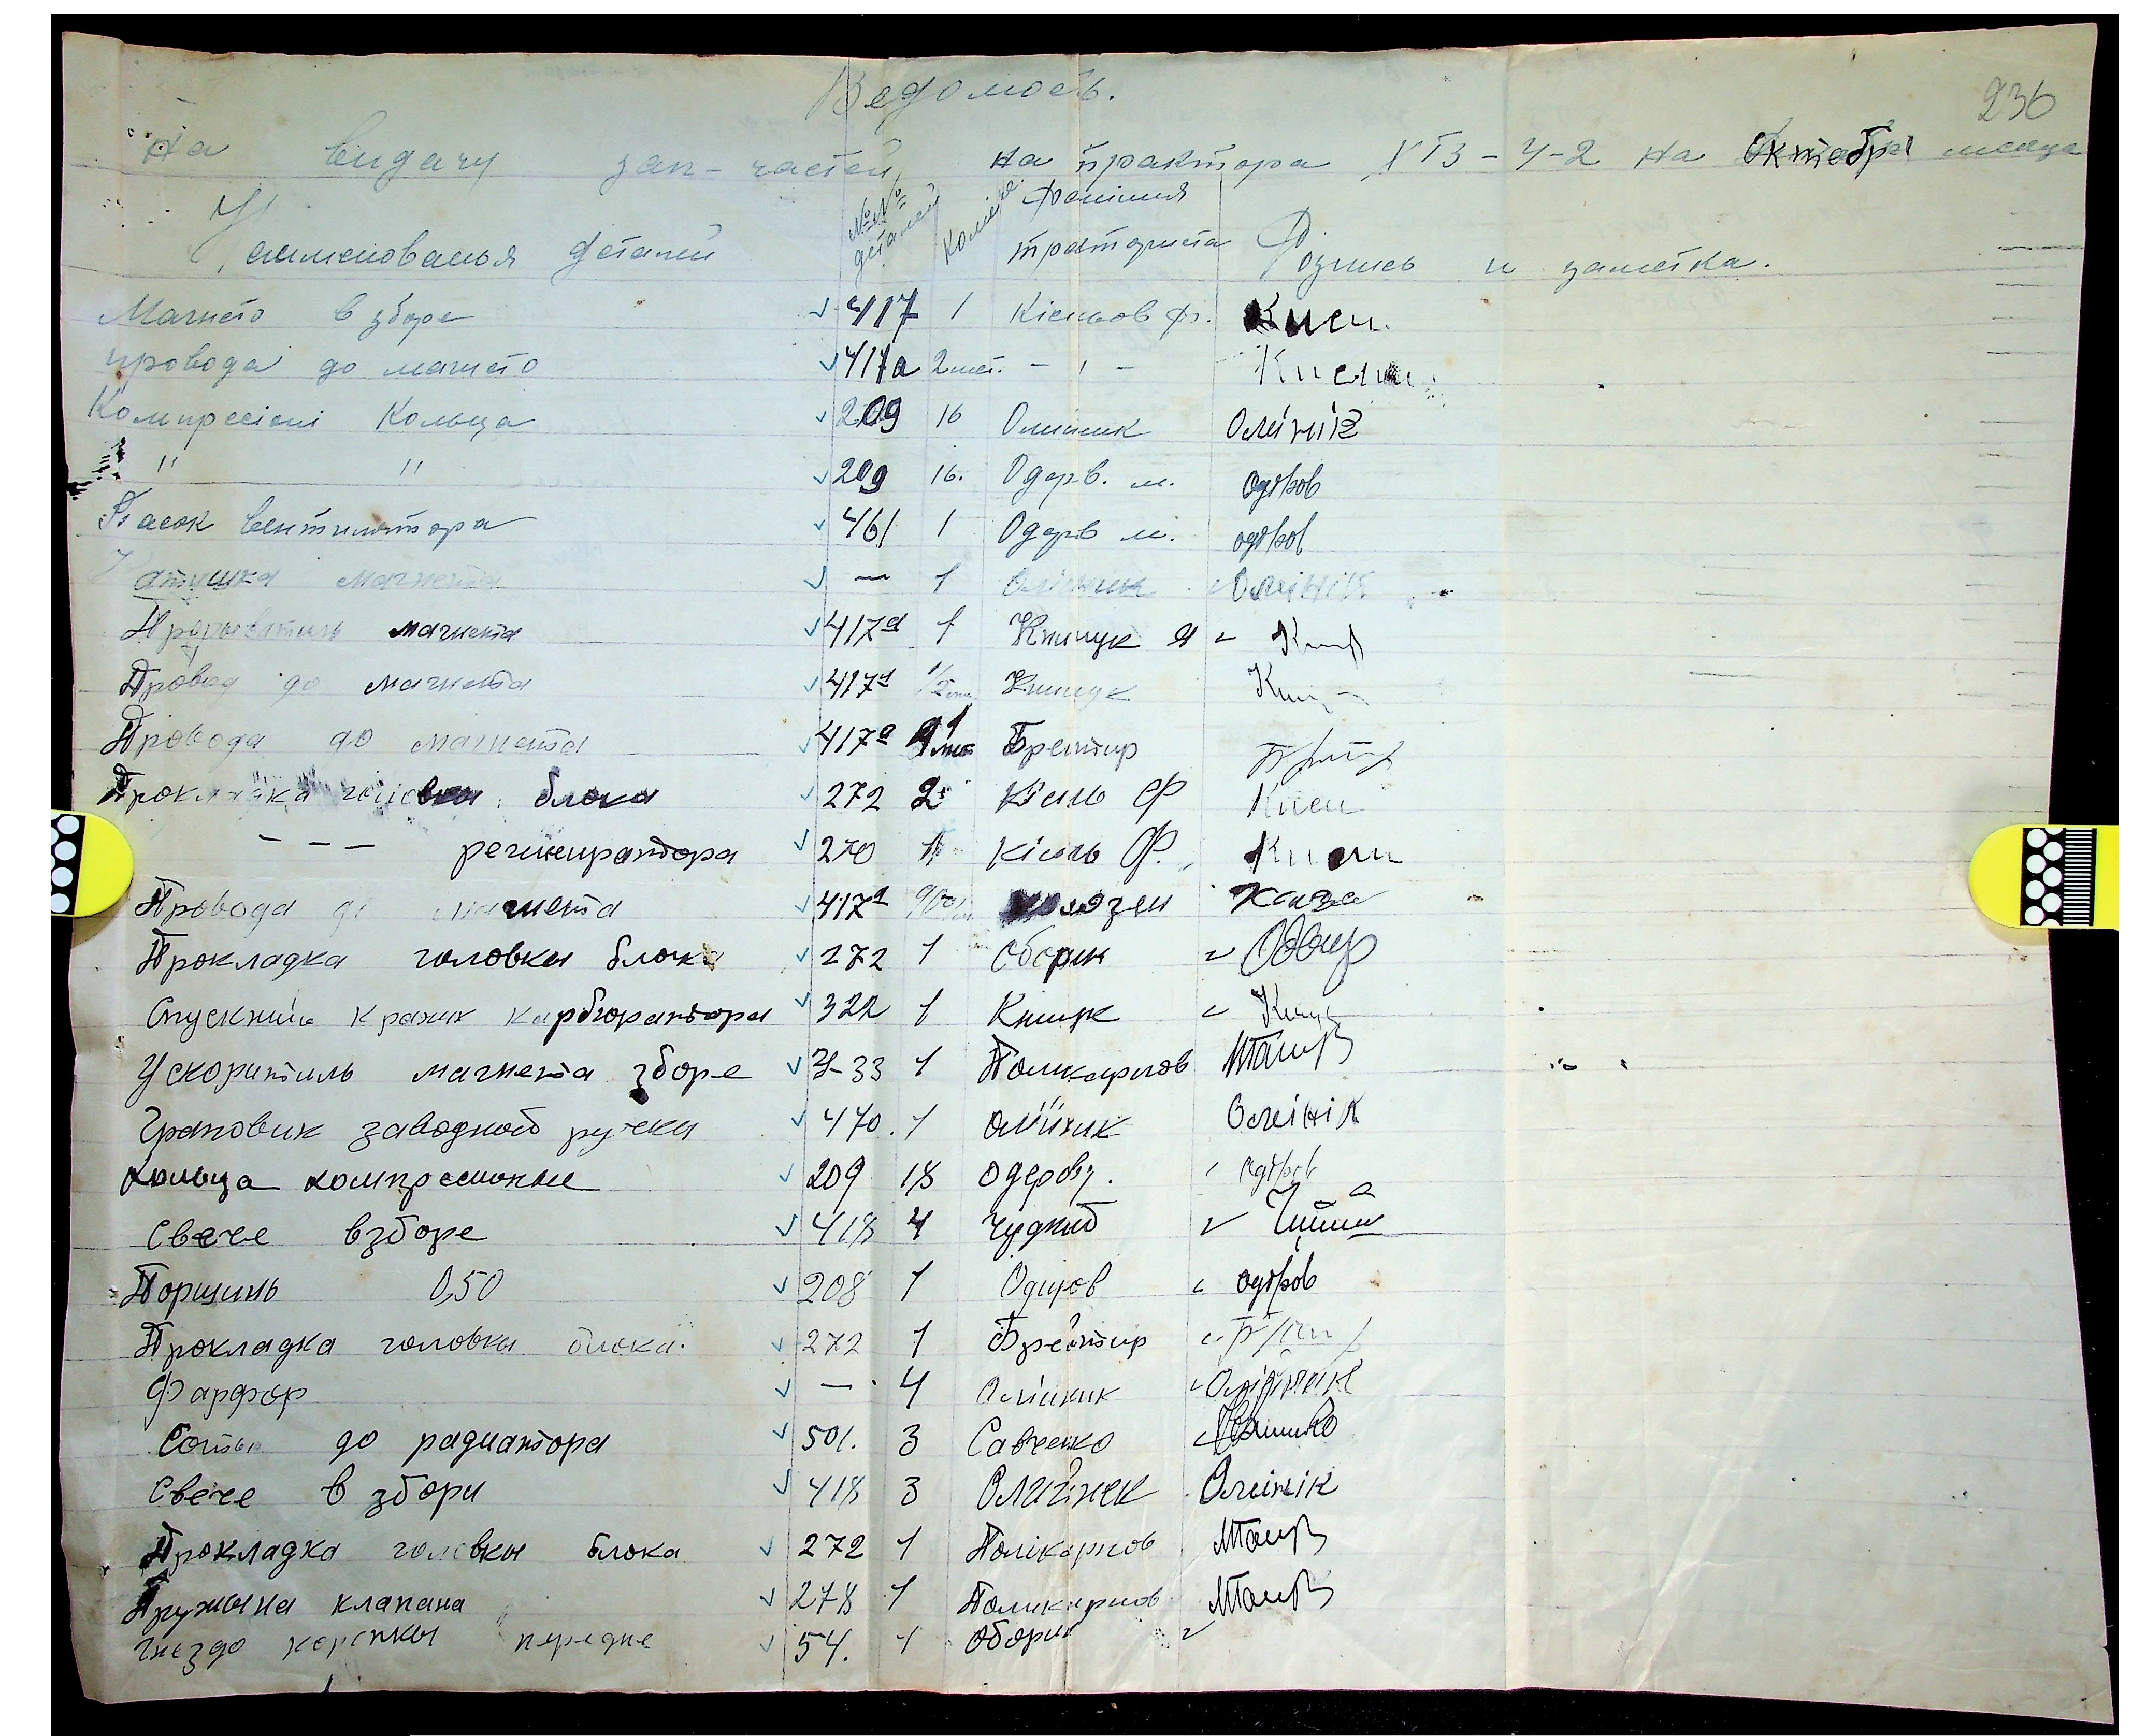 Ведомость.
236
На видачу зап-частей на трактора ХТЗ-У-2 на Октобрь месяца
Наименованья деталей №№ деталей Колич. Фамилия тракториста Розпись и заметка.
Магнето в зборе 417 1 Кісильов Ф. Кисил.
провода до магнето 417а 2 шт. - " - Кисил
Компресіоні Кольца 209 16 Олійник Олінік
" " 209 16. Одерів. м. Одіров
Пасок вентилятора 461 1 Одерів м. Одіров
Катушка магнета — 1 Олійник Олінік
Прерыватиль магнета 417а 1 Книщук Я
Провод до магнета 417а 1/2 Книщук
Провода до магнета 417а 1 Брейтир
Прокладка головки блока 272 2 Кісиль Ф Кисил
- - - региниратора 270 1 Кісиль Ф. Кисил
Провода до магнета 417а
Прокладка головки блока 272 1 Оборин
Спускний краник карбюратора 322 1 Книщук
Ускоритиль магнета зборе У-33 1 Поликарпов
Храповик заводной ручки 470. 1 Олійник Олінік
Кольца компресионние 209 18 Одеров. Одіров
Свече взборе 418 4 Чудний
Поршинь 0,50 208 1 Одиров Одіров
Прокладка головки блока. 272 1 Брейтир
Фарфор — 4 Олійник Олійник
Соты до радиатора 501. 3 Савченко
Свече в збори 418 3 Олийнек Олинік
Прокладка головки блока 272 1 Полікарпов
Пружына клапана 278 1 Поликарпов
Гнездо коропкы передне 54. 1 Оборин